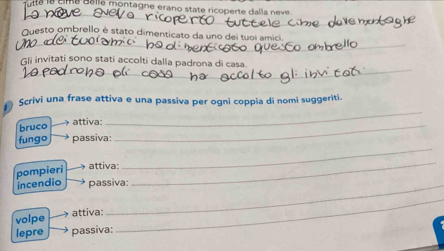 Tutte le cime delle montagne erano state ricoperte dalla neve.
La neve aveva ricoperto tuttele cime dele montaghe
Questo ombrello è stato dimenticato da uno dei tuoi amici.
Uno dei tuoi amici ha dimenticato questo ombrello
Gli invitati sono stati accolti dalla padrona di casa.
La padrona di casa ha accolto gli invitati
Scrivi una frase attiva e una passiva per ogni coppia di nomi suggeriti.
bruco → attiva:
fungo → passiva:
pompieri → attiva:
incendio → passiva:
volpe → attiva:
lepre → passiva: